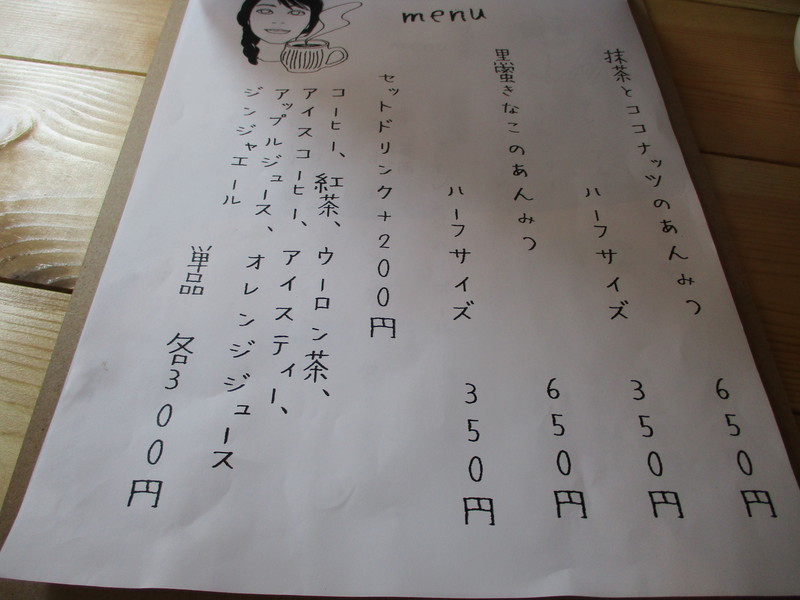 menu
抹茶とココナッツのあんみつ 650円
ハーフサイズ 350円
黒蜜きなこのあんみつ 650円
ハーフサイズ 350円
セットドリンク+200円
コーヒー、紅茶、ウーロン茶、
アイスコーヒー、アイスティー、
アップルジュース、オレンジジュース
ジンジャエール
単品 各300円